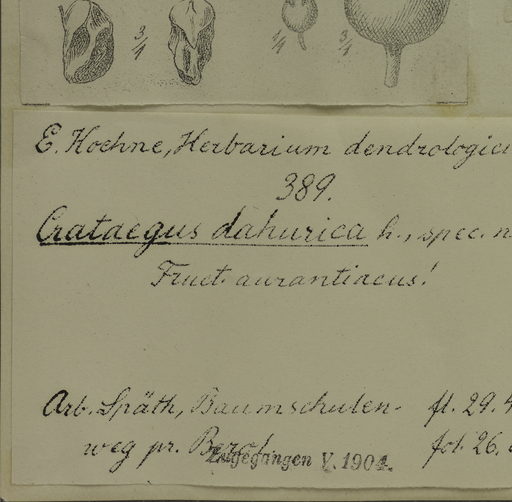 3/4 1/4 3/4
E. Koehne, Herbarium dendrologic
389.
Crataegus dahurica h., spec. n
Fruct. aurantiacus!
Arb. Späth, Baumschulen- fl. 29. 4
weg pr. Berol. fol. 26.
Eingegangen V. 1904.